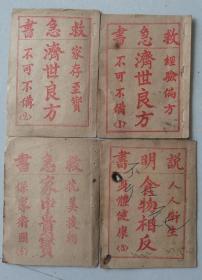 書急救
家存至寶
濟世良方
不可不備
書急救
經驗偏方
濟世良方
不可不備
書急救
抗美援朝
家中貴寶
保家衛國
書明説
人人衛生
食物相反
身體健康